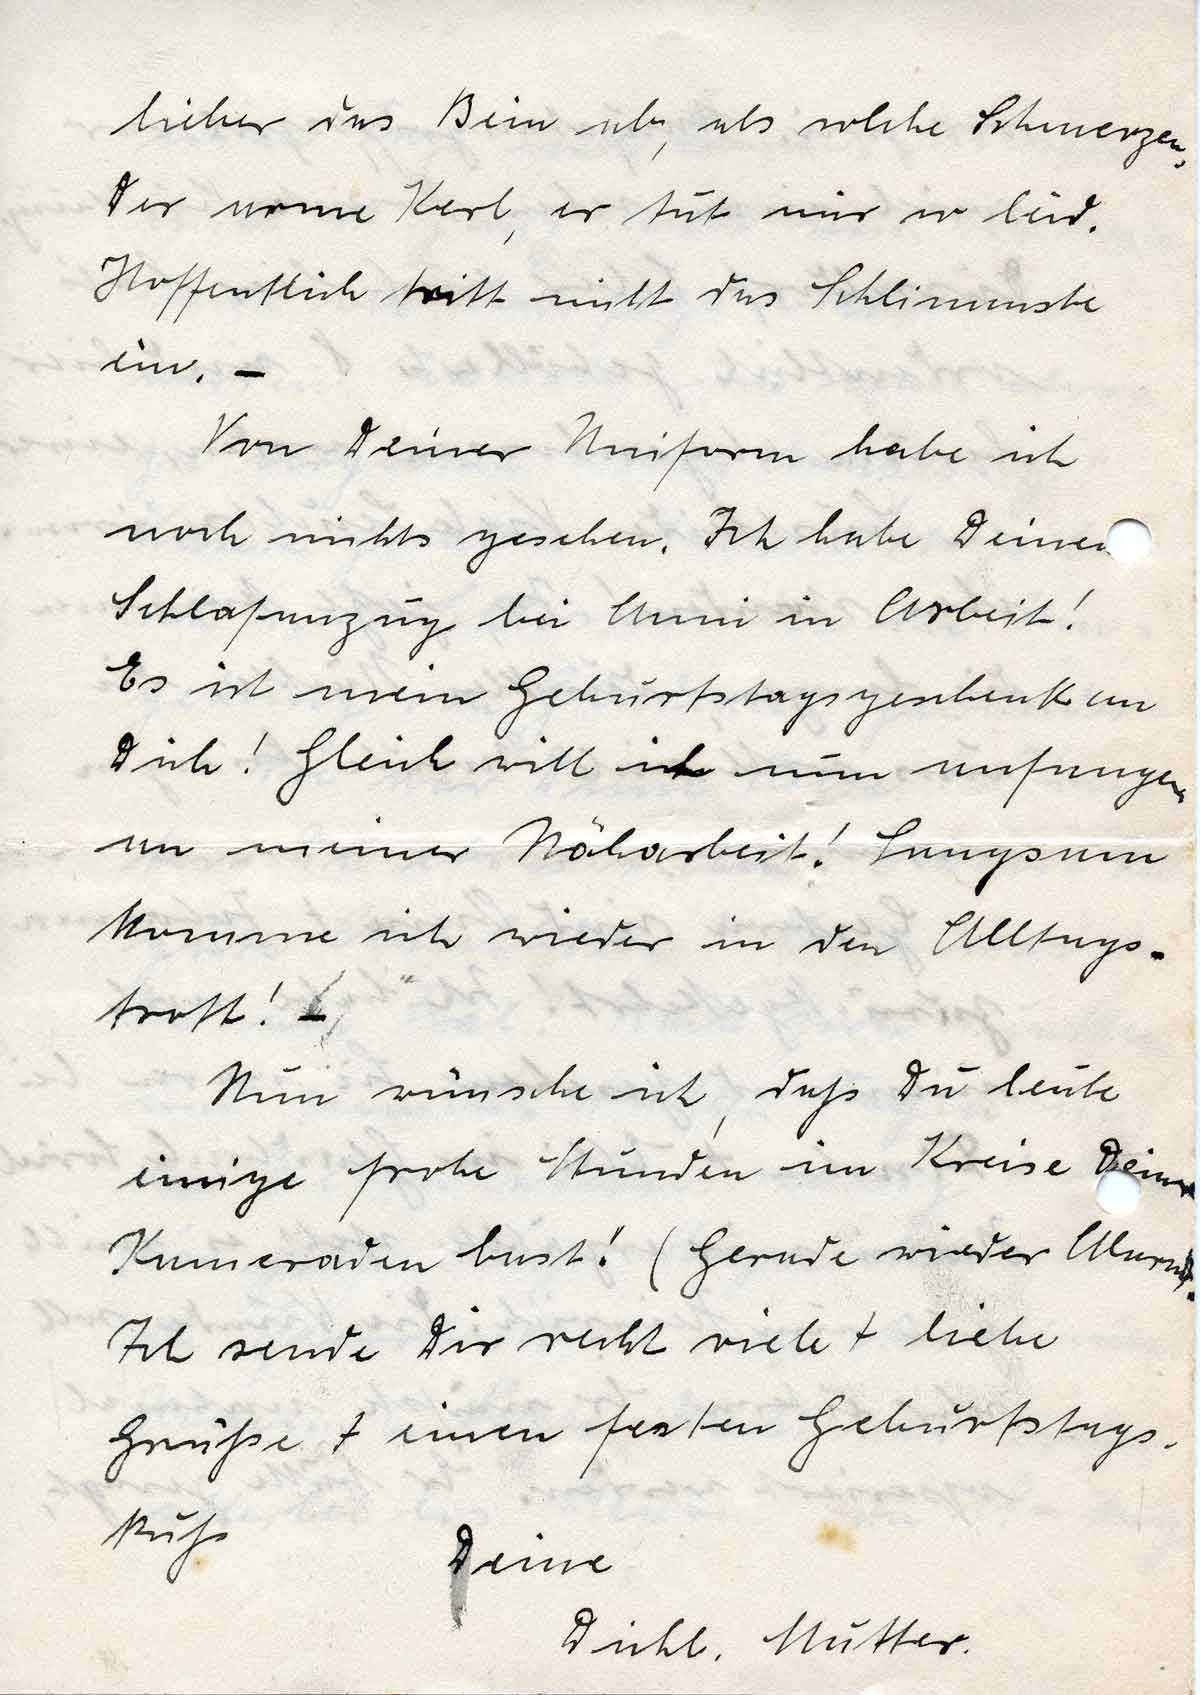 lieber das Bein ab, als solche Schmerzen,
Der arme Kerl, er tut mir so leid.
Hoffentlich tritt nicht das Schlimmste
ein. –
Von Deiner Uniform habe ich
noch nichts gesehen. Ich habe Deinen
Schlafanzug bei Anni in Arbeit!
Es ist mein Geburtstagsgeschenk an
Dich! Gleich will ich nun anfangen
an meiner Näharbeit! Langsam
komme ich wieder in den Alltags-
trott! –
Nun wünsche ich, daß Du heute
einige frohe Stunden im Kreise Deiner
Kameraden hast! (Gerade wieder Alarm)
Ich sende Dir recht viele + liebe
Grüße + einen festen Geburtstags-
kuß
Deine
Dichl. Mutter.